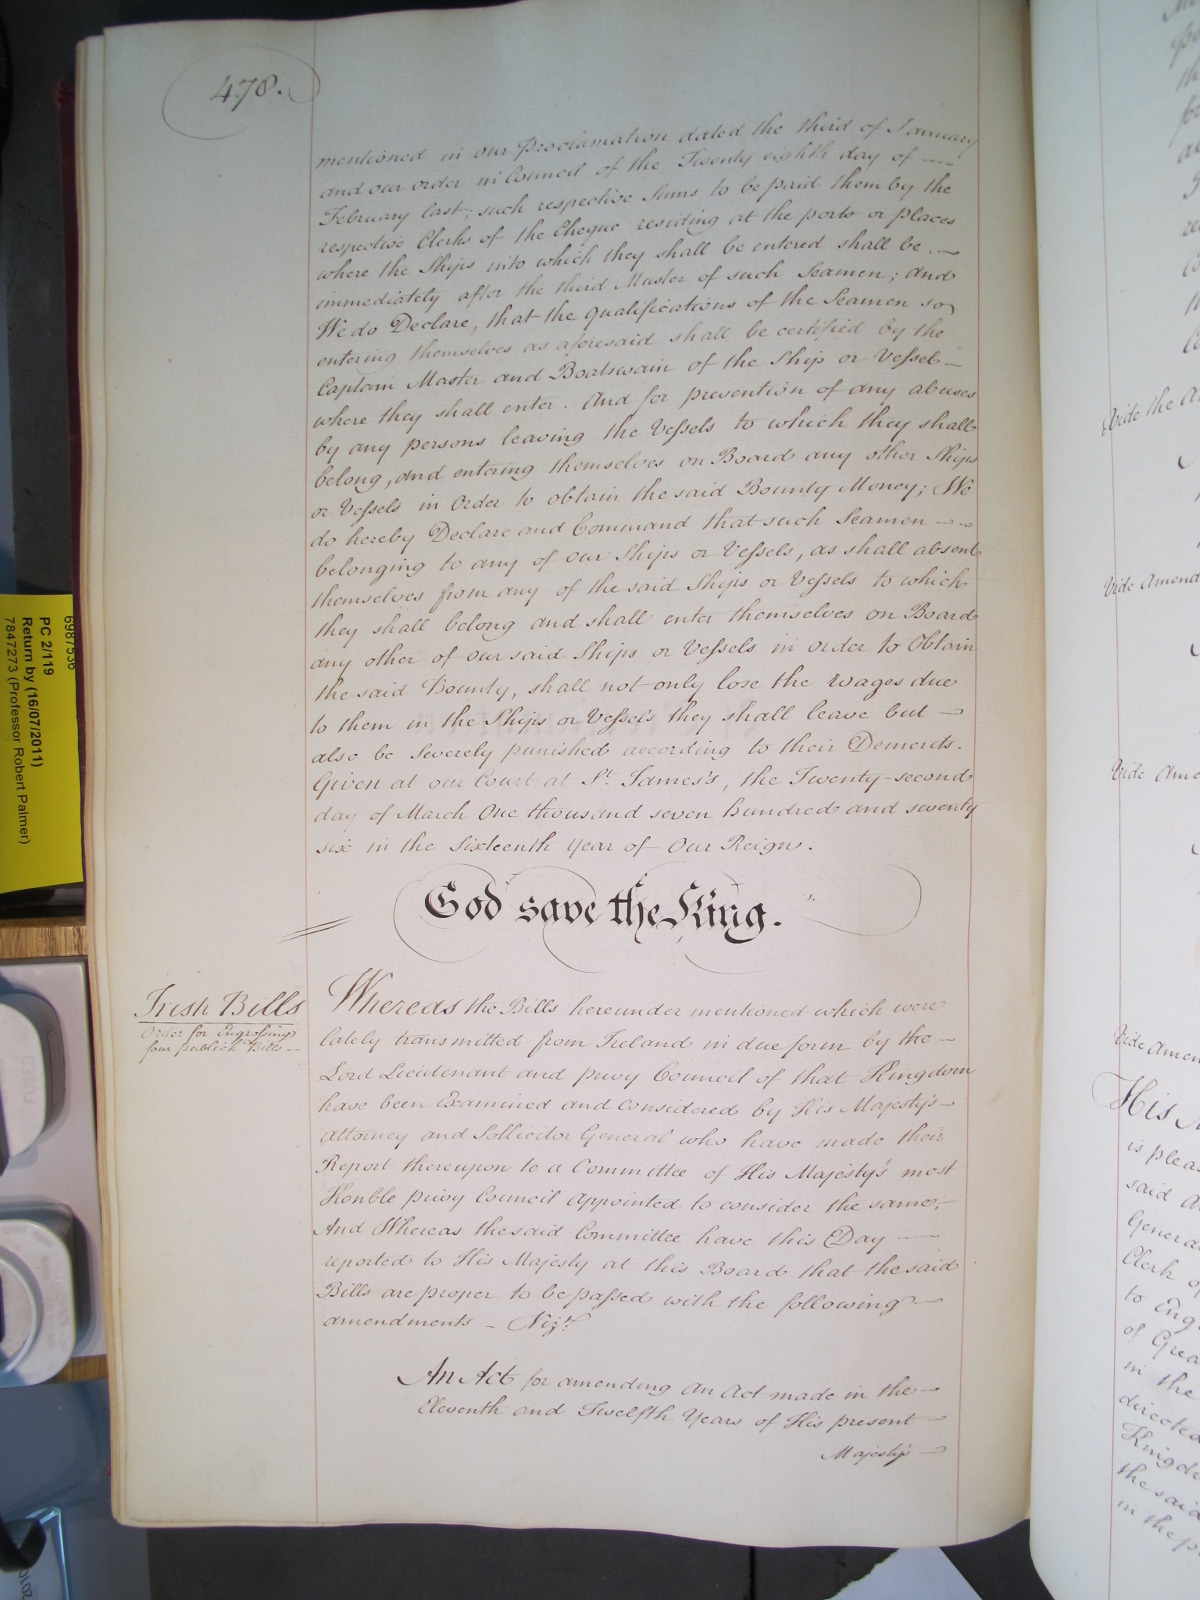 478.
mentioned in our Proclamation dated the third of January
and our order in Council of the Twenty eighth day of
February last; such respective Sums to be paid them by the
respective Clerks of the Cheque residing at the ports or places
where the Ships into which they shall be entered shall be
immediately after the third Muster of such Seamen; And
We do Declare, that the qualifications of the Seamen so
entering themselves as aforesaid shall be certified by the
Captain Master and Boatswain of the Ship or Vessel
where they shall enter. And for prevention of any abuses
by any persons leaving the Vessels to which they shall
belong, and entering themselves on Board any other Ships
or Vessels in Order to obtain the said Bounty Money; We
do hereby Declare and Command that such Seamen
belonging to any of our Ships or Vessels, as shall absent
themselves from any of the said Ships or Vessels to which
they shall belong and shall enter themselves on Board
any other of our said Ships or Vessels in order to Obtain
the said Bounty, shall not only lose the wages due
to them in the Ships or Vessels they shall leave but
also be Severely punished according to their Demerits.
Given at our Court at St. James's, the Twenty-second
day of March One thousand seven hundred and seventy
six in the Sixteenth Year of Our Reign.
God save the King.
Irish Bills
Order for Engrossing
four publick Bills
Whereas the Bills hereunder mentioned which were
lately transmitted from Ireland in due form by the
Lord Lieutenant and privy Council of that Kingdom
have been Examined and Considered by His Majesty's
Attorney and Sollicitor General who have made their
Report thereupon to a Committee of His Majesty's most
Honble privy Council Appointed to consider the same;
And Whereas the said Committee have this Day
reported to His Majesty at this Board that the said
Bills are proper to be passed with the following
amendments Vizt.
An Act for amending an Act made in the
Eleventh and Twelfth Years of His present
Majesty's
Vide the
Vide Amend
Vide Ame
Vide Amen
His
is plea
said
General
Clerk of
to Eng
of Grea
in the
directed
Kingdo
the said
in the p
6987536
PC 2/119
Return by (16/07/2011)
7847273 (Professor Robert Palmer)